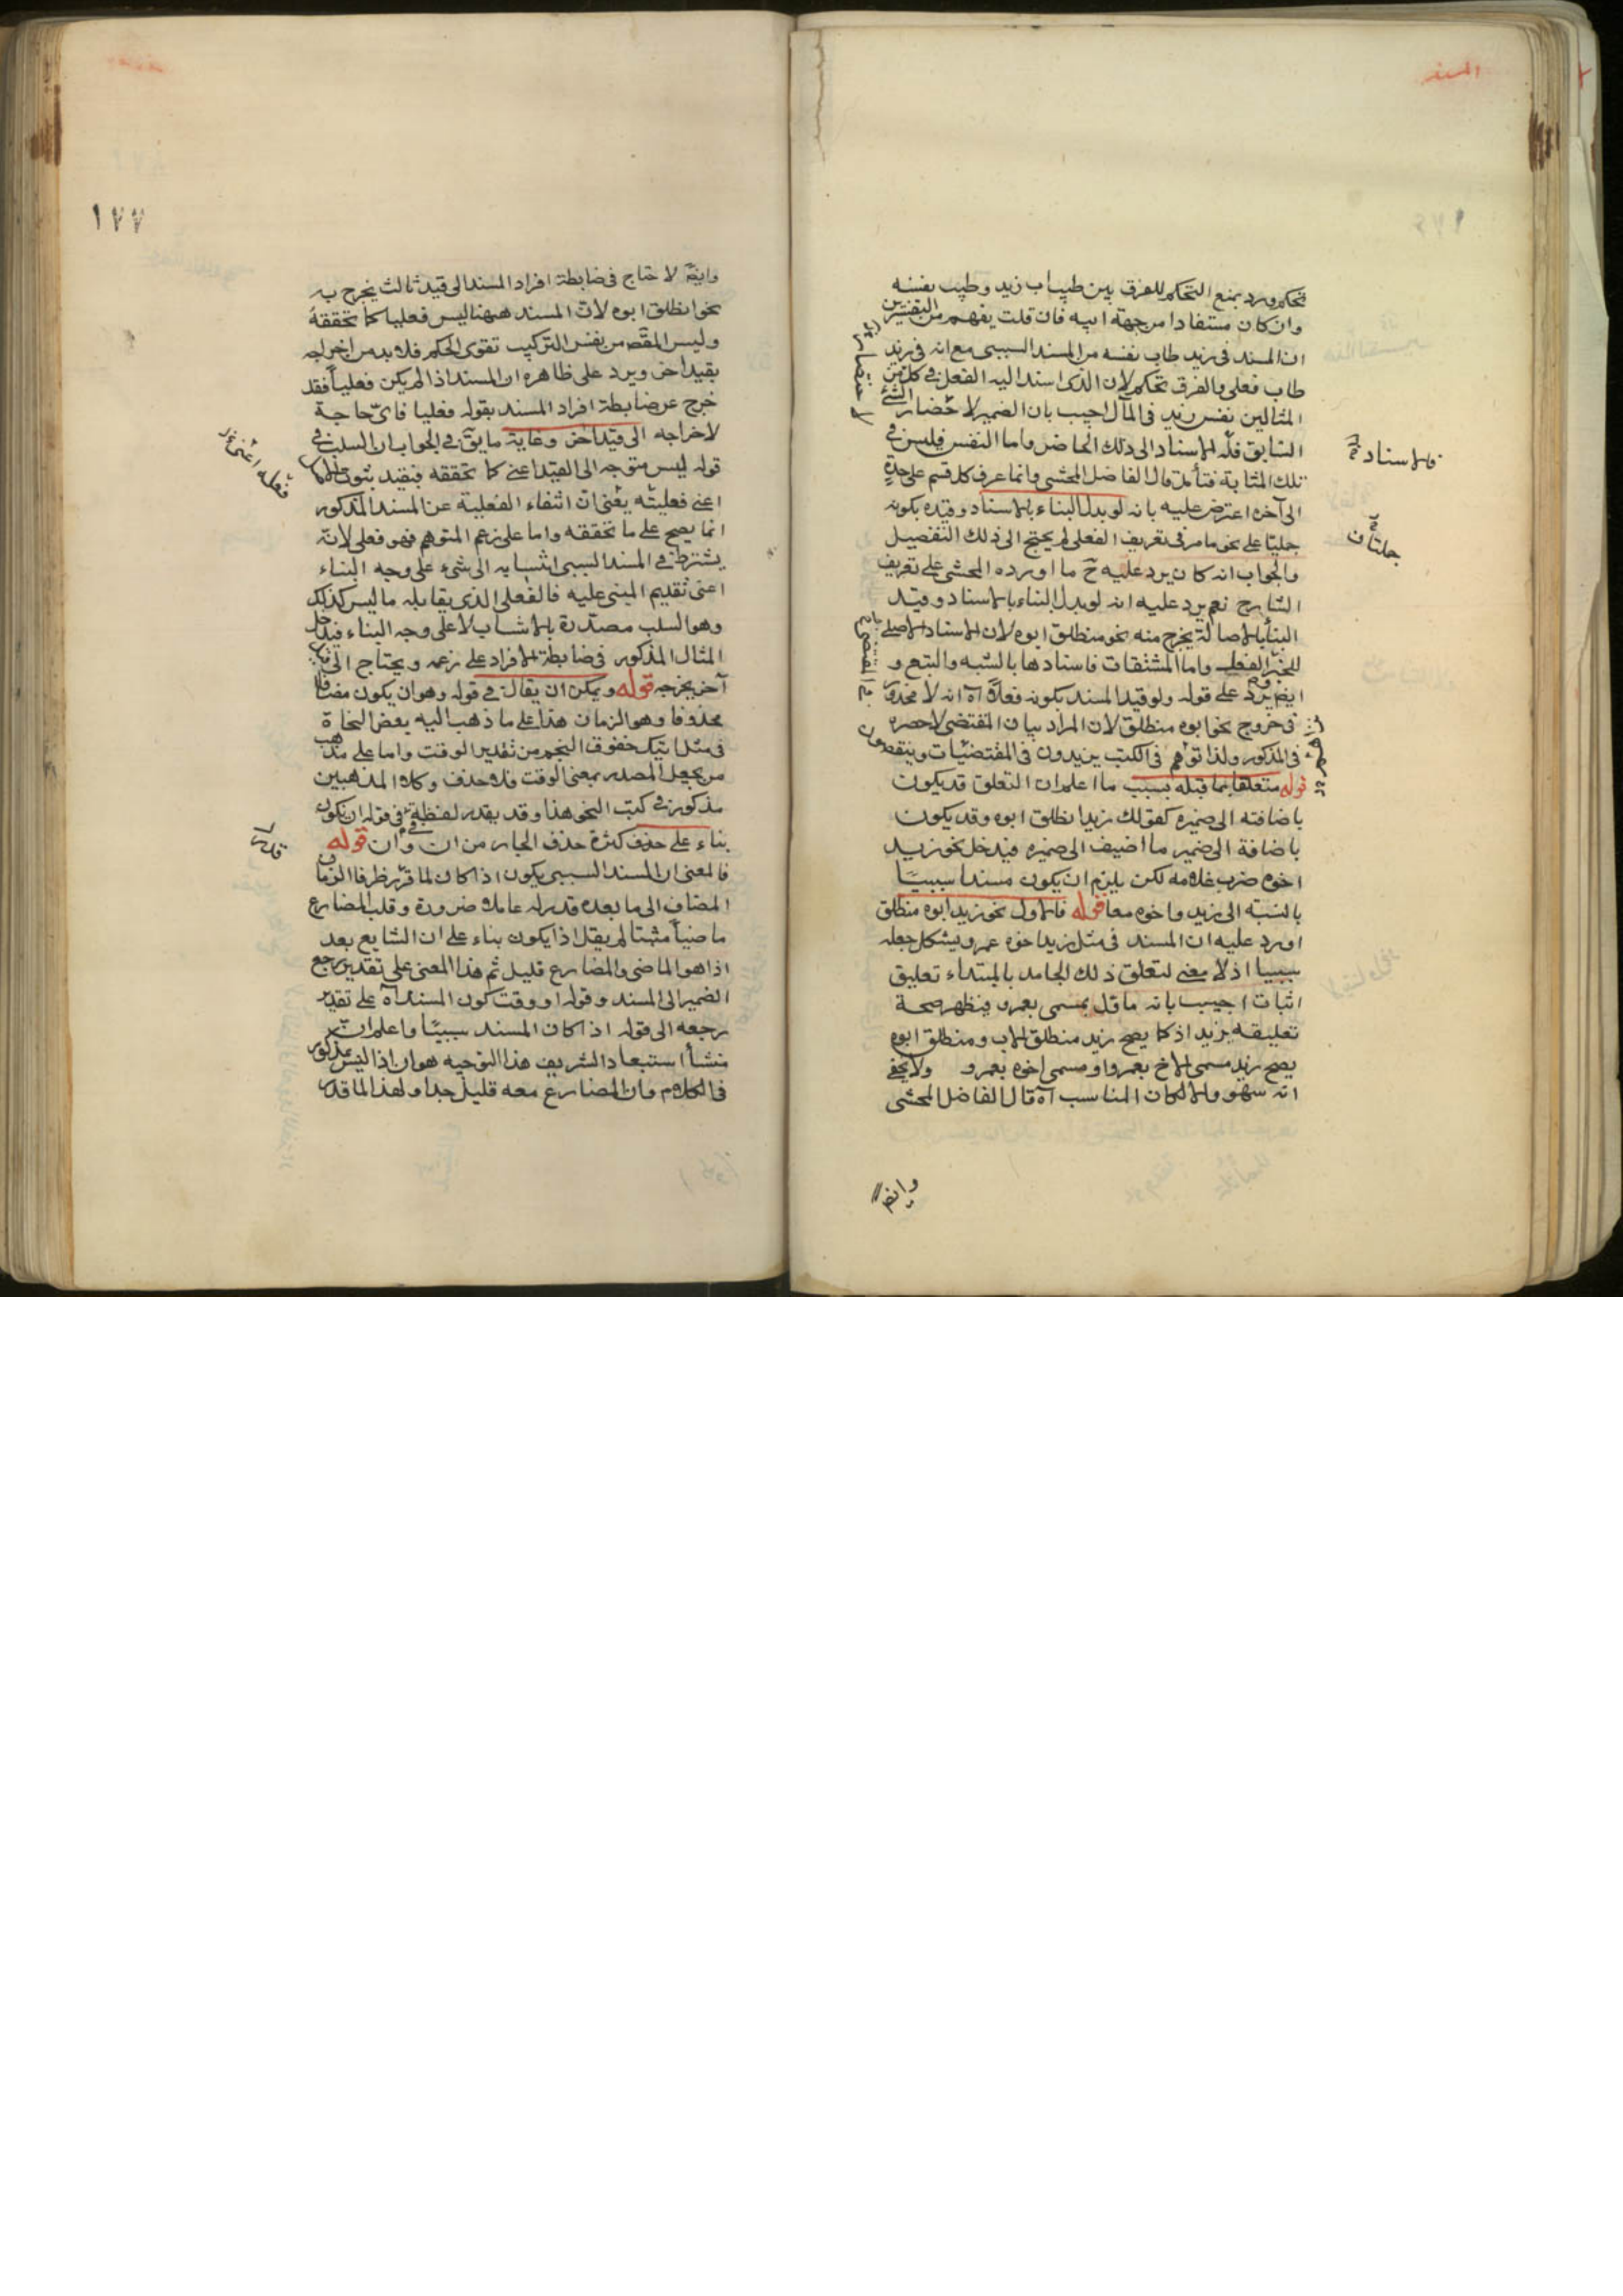 المسند
تحكم ورد بمنع التحكم للفرق بين طيب اب زيد وطيب نفسه
وان كان مستفادا من جهة ابيه فان قلت يفهم من التفسيرين
ان المسند في زيد طاب نفسه من المسند السببى مع انه في زيد
طاب فعلى والفرق تحكم لان الذى اسند اليه الفعل في كل من
المثالين نفس زيد في المآل اجيب بان الضمير لاحضار الشئ
السابق فله الاسناد الى ذلك الحاضر واما النفس فليس في
تلك المثابة فتأمل قال الفاضل المحشى وانما عرف كل قسم على حدة
الى آخره اعترض عليه بانه لو بدل البناء بالاسناد وقيده بكونه
جليا على نحو ما مر في تعريف الفعلى لم يحتج الى ذلك التفصيل
والجواب انه كان يرد عليه ح ما اورده المحشى على تعريف
الشارح نعم يرد عليه انه لو بدل البناء بالاسناد وقيد
البنا بالاصالة يخرج منه نحو منطلق ابوه لان الاسناد الاصلى
للخبر الفعلى واما المشتقات فاسنادها بالشبه والتبع و
ايضا يرد على قوله ولو قيد المسند بكونه فعلا آه انه لا محذور
فى خروج نحو ابوه منطلق لان المراد بيان المقتضى لا حصره
فى المذكور ولذا توهم فى الكتب يزيدون فى المقتضيات وينقصون
قوله متعلقا بما قبله بسبب ما اعلم ان التعلق قد يكون
باضافته الى ضميره كقولك زيد انطلق ابوه وقد يكون
باضافة الى ضمير ما اضيف الى ضميره فيدخل نحو زيد
اخوه ضرب غلامه لكن يلزم ان يكون مسندا سببيا
بالنسبة الى زيد واخوه معا قوله فالاول نحو زيد ابوه منطلق
اورد عليه ان المسند فى مثل زيد اخوه عمرو يشكل جعله
سببيا اذ لا معنى لتعلق ذلك الجامد بالمبتداء تعليق
اثبات اجيب بانه ماول بمسمى بعمرو فيظهر صحة
تعليقه بزيد اذ كما يصح زيد منطلق الاب ومنطلق ابوه
يصح زيد مسمى الاخ بعمرو او مسمى اخوه بعمرو ولا يخفى
انه سهو والا لكان المناسب آه قال الفاضل المحشى
وايضا
فالاسناد
١٧٧
وايضا لا حتاج فى ضابطة افراد المسند الى قيد ثالث يخرج به
نحو انطلق ابوه لان المسند ههنا ليس فعليا كما تحققه
وليس المقصد من نفس التركيب تقوى الحكم فلا بد من اخراجه
بقيد اخر ويرد على ظاهره ان المسند اذا لم يكن فعليا فقد
خرج عن ضابطة افراد المسند بقوله فعليا فاى حاجة
لاخراجه الى قيد اخر وغاية ما يق فى الجواب ان السلب فى
قوله ليس متوجه الى القيد اعنى كما تحققه فيفيد ثبوت
اعنى فعليته يعنى ان انتفاء الفعلية عن المسند المذكور
انما يصح على ما تحققه واما على زعم المتوهم فهو فعلى لانه
يشترط فى المسند السببى انتسابه الى شىء على وجه البناء
اعنى تقديم المبنى عليه فالفعلى الذى يقابله ما ليس كذلك
وهو السلب مصدرة بالانتساب لا على وجه البناء فيدخل
المثال المذكور فى ضابطة الافراد على زعمه ويحتاج الى
آخر يخرجه قوله ويمكن ان يقال فى قوله وهو ان يكون مضافا
محذوفا وهو الزمان هذا على ما ذهب اليه بعض النحاة
فى مثل اتيك خفوق النجم من تقدير الوقت واما على مذهب
من يجعل المصدر بمعنى الوقت فلا حذف وكلا المذهبين
مذكور فى كتب النحو هذا وقد يقدر لفظة فى فى قوله ان يكون
بناء على حذف كثرة حذف الجار من ان وان قوله
فالمعنى ان المسند السببى يكون اذا كان لما قرر ظرفا الزمان
المضاف الى ما بعده قدر له عامله ضرورة وقلب المضارع
ماضيا مثبتا لم يقل اذا يكون بناء على ان الشايع بعد
اذا هو الماضى والمضارع قليل ثم هذا المعنى على تقدير رجع
الضمير الى المسند وقوله او وقت كون المسند آه على تقدير
رجعه الى قوله اذا كان المسند سببيا واعلم ان
منشأ استبعاد الشريف هذا التوجيه هو ان اذا ليس مذكور
فى الكلام وان المضارع معه قليل جدا ولهذا لما قدر